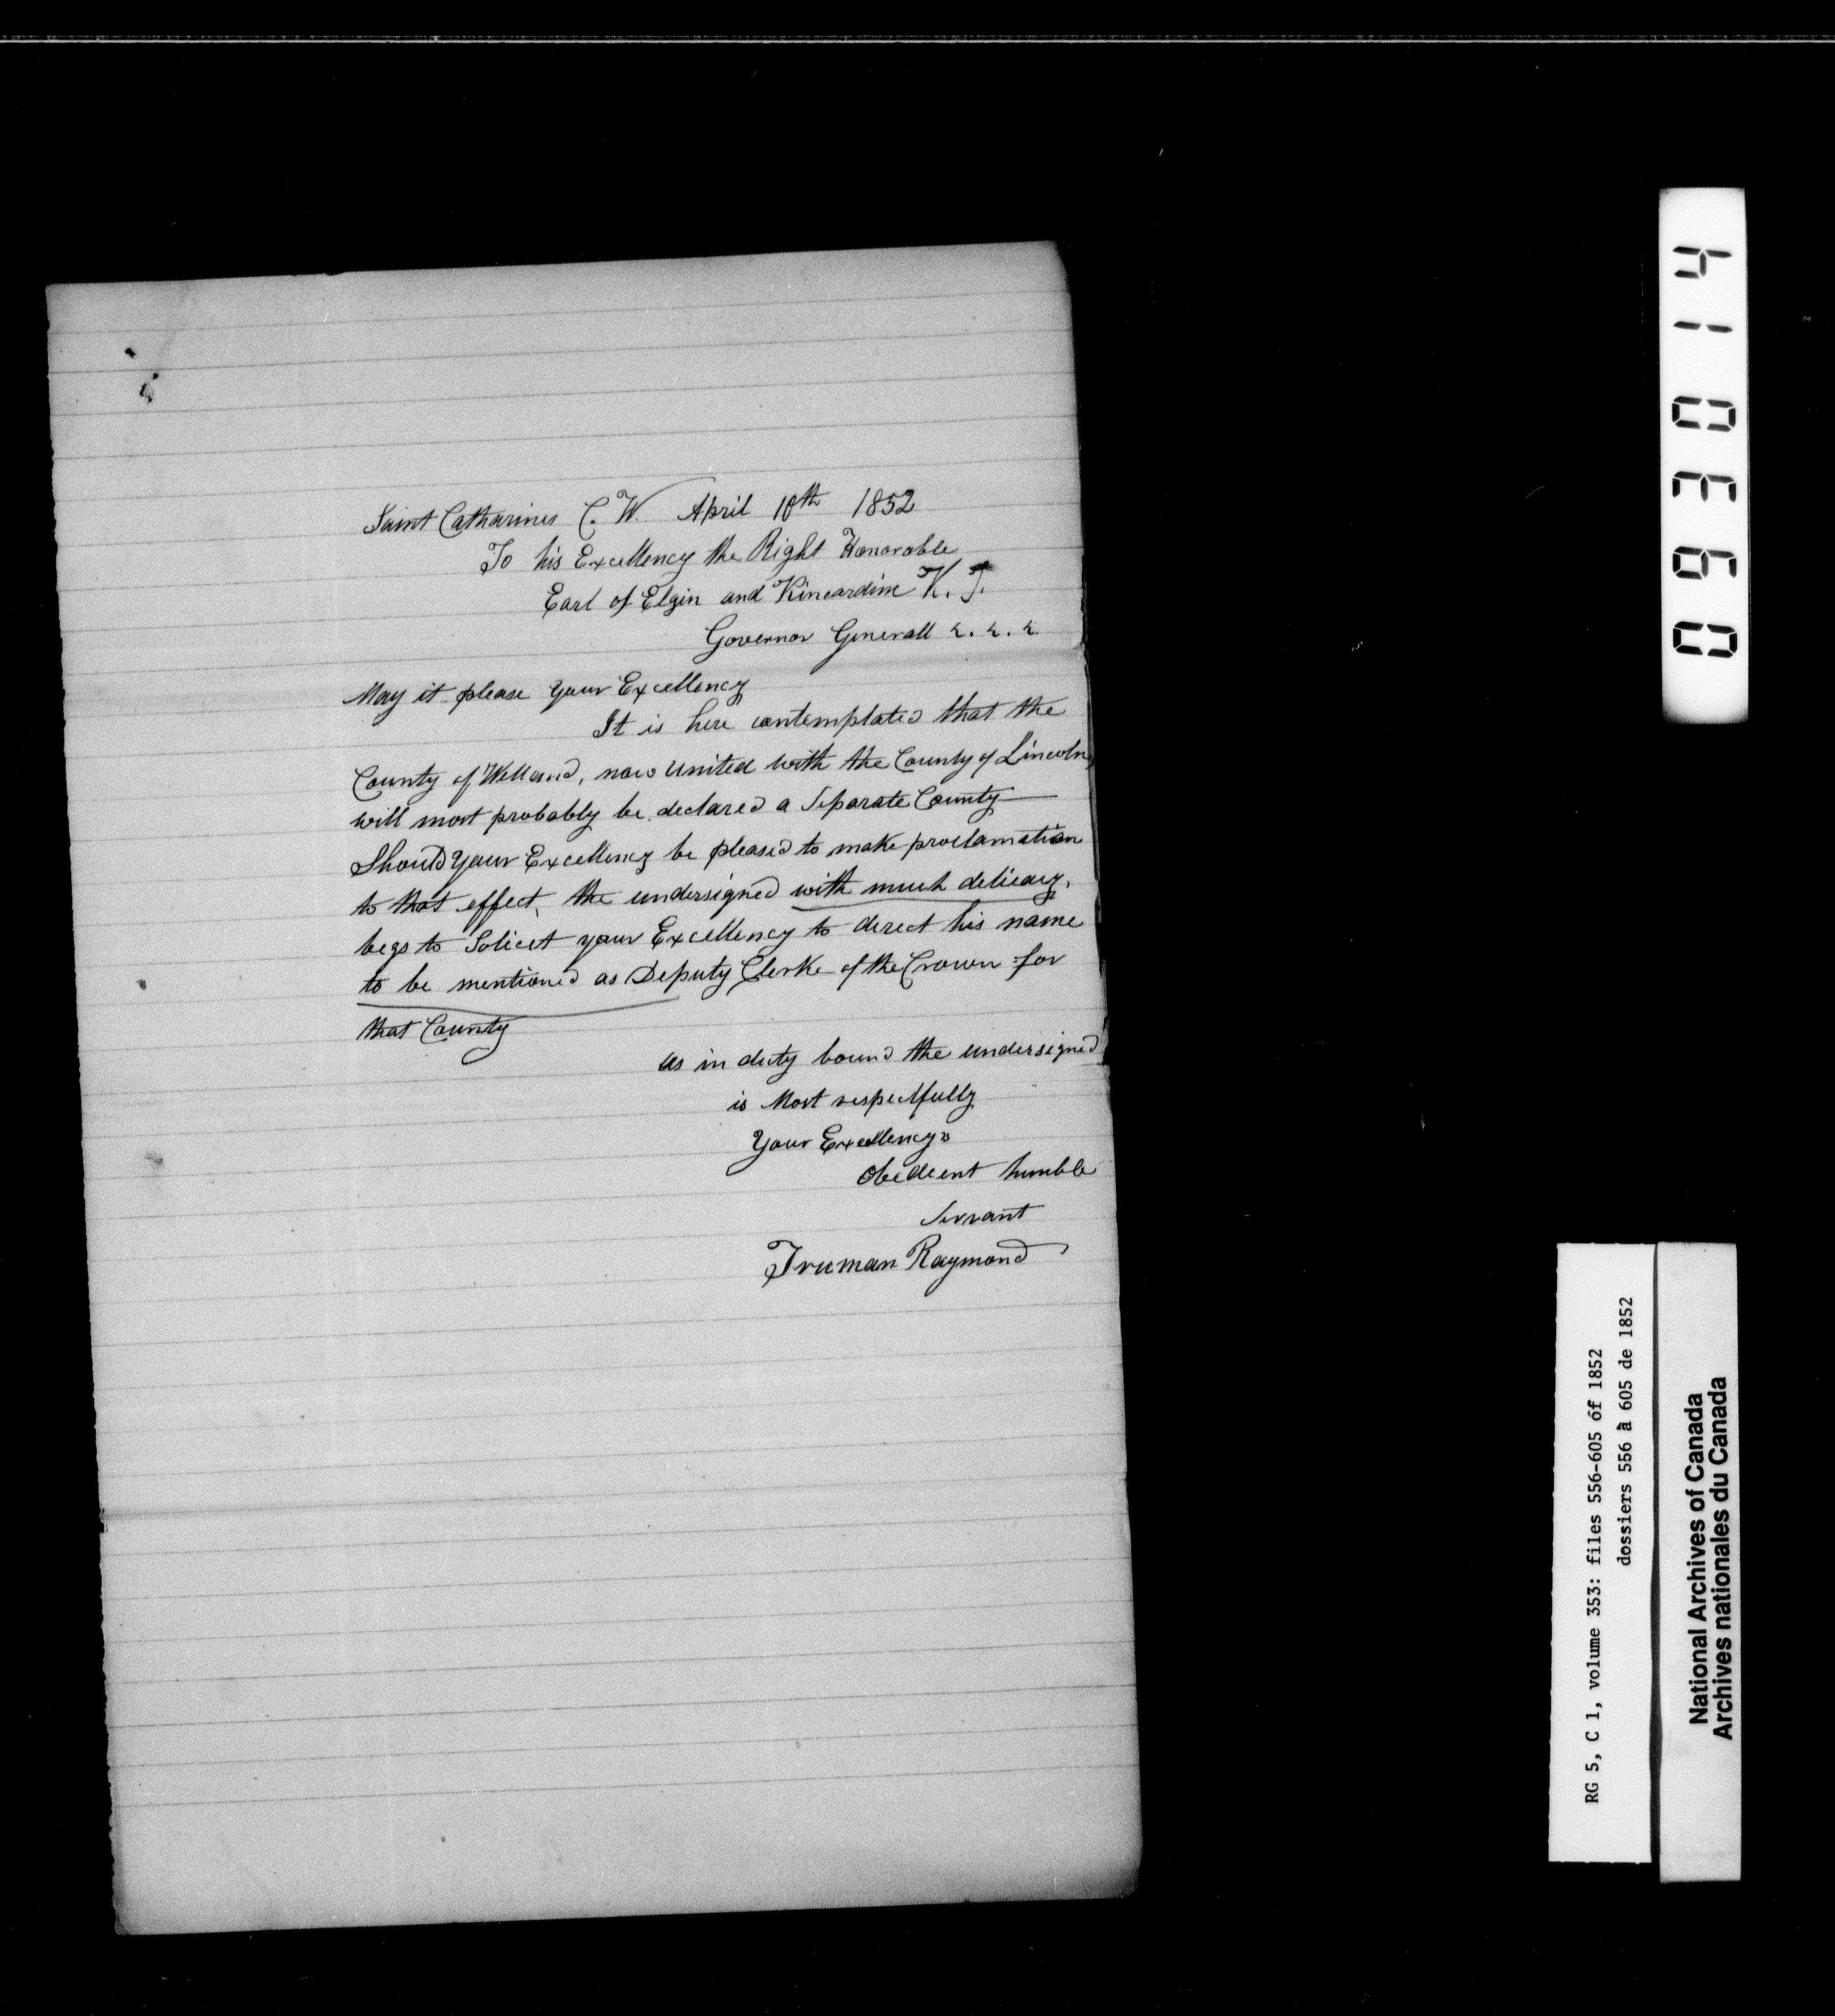 Saint Catharines C. W. April 10th 1852
To his Excellency the Right Honorable
Earl of Elgin and Kincardine K. T.
Governor Generall &. &. &
May it please your Excellency
It is here contemplated that the
County of Welland, now United with the County of Lincoln,
will most probably be declared a Separate County
Should your Excellency be pleased to make proclamation
to that effect, the undersigned with much delicacy,
begs to Solicit your Excellency to direct his name
to be mentioned as Deputy Clerke of the Crown for
that County
as in duty bound the undersigned
is Most respectfully
Your Excellencys
obedient humble
Servant
Truman Raymond
069014
RG 5, C 1, volume 353: files 556-605 of 1852
dossiers 556 à 605 de 1852
National Archives of Canada
Archives nationales du Canada